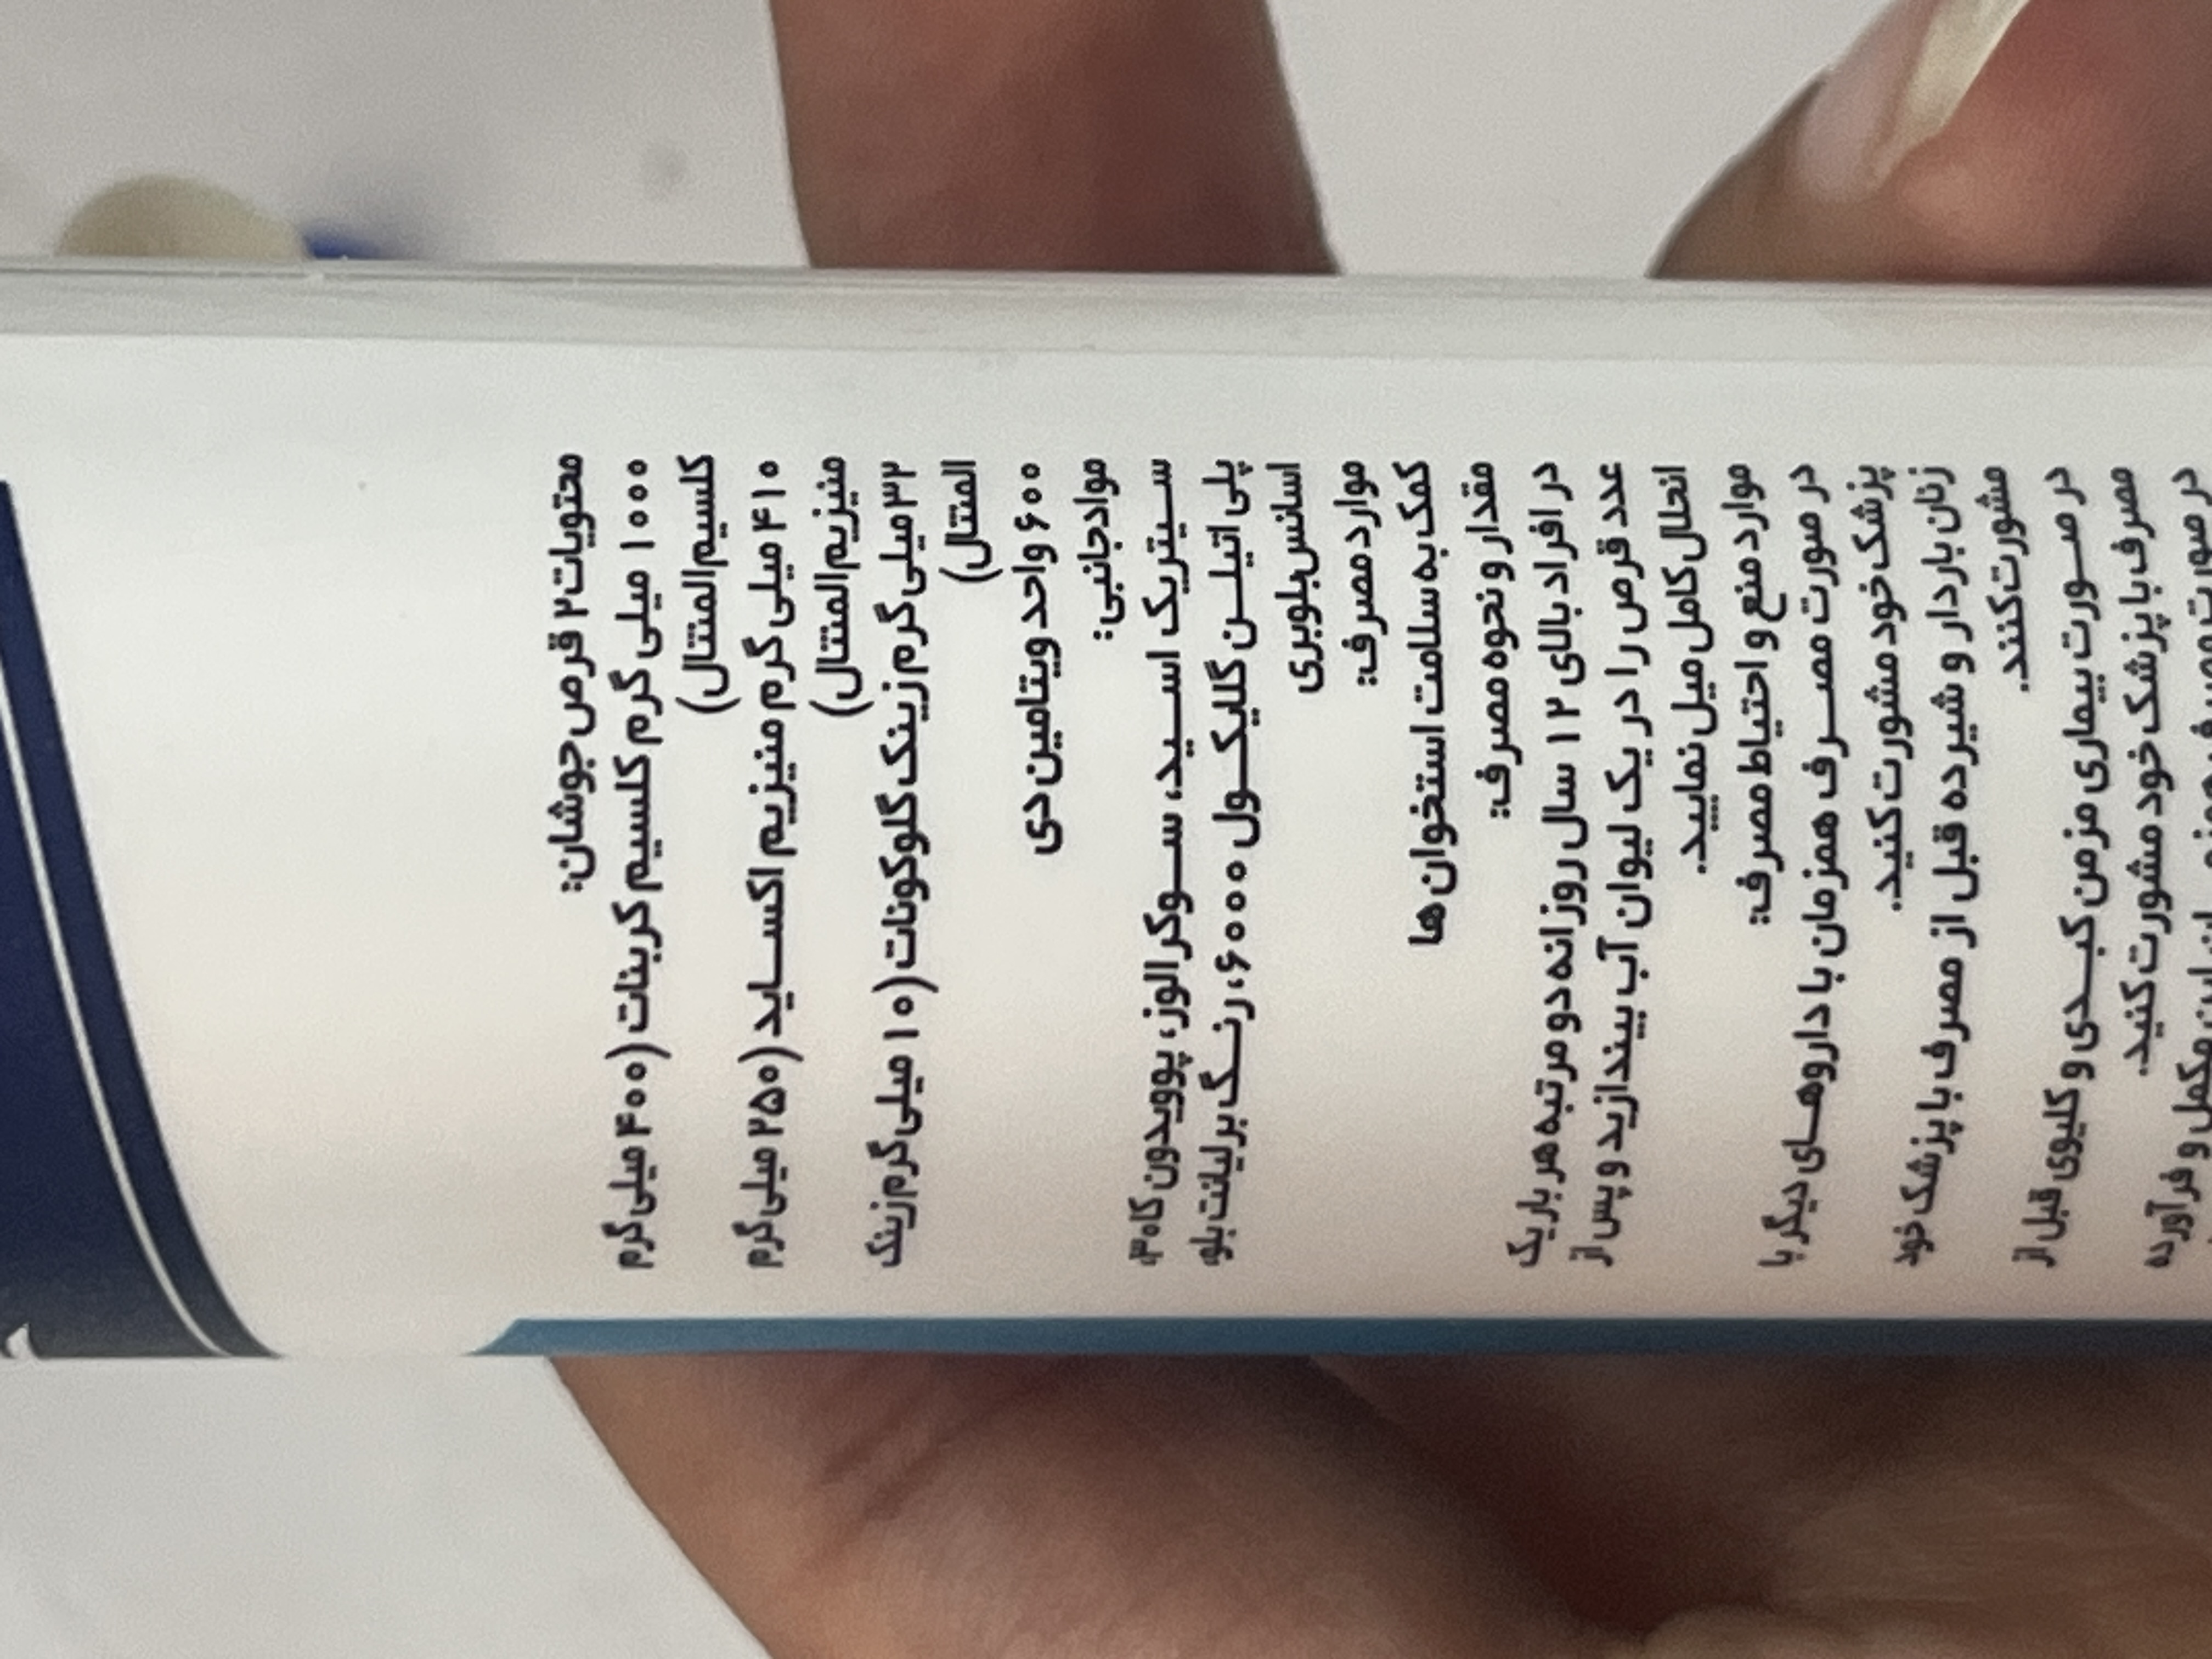 محتویات ۲ قرص جوشان:
۱۰۰۰ میلی گرم کلسیم کربنات (۴۰۰ میلی گرم
کلسیم المنتال)
۴۱۰ میلی گرم منیزیم اکساید (۲۵۰ میلی گرم
منیزیم المنتال)
۲۳ میلی گرم زینک گلوکونات (۱۰ میلی گرم زینک
المنتال)
۶۰۰ واحد ویتامین دی
مواد جانبی:
سیتریک اسید، سوکرالوز، پوویدون کا۳۰،
پلی اتیلن گلیکول ۶۰۰۰، رنگ برلیانت بلو،
اسانس بلوبری
موارد مصرف:
کمک به سلامت استخوان ها
مقدار و نحوه مصرف:
در افراد بالای ۱۲ سال روزانه دو مرتبه هر بار یک
عدد قرص را در یک لیوان آب بیندازید و پس از
انحلال کامل میل نمایید.
موارد منع و احتیاط مصرف:
در صورت مصرف همزمان با داروهای دیگر با
پزشک خود مشورت کنید.
زنان باردار و شیرده قبل از مصرف با پزشک خود
مشورت کنند.
در صورت بیماری مزمن کبدی و کلیوی قبل از
مصرف با پزشک خود مشورت کنید.
در صورت مصرف همزمان این مکمل و فرآورده